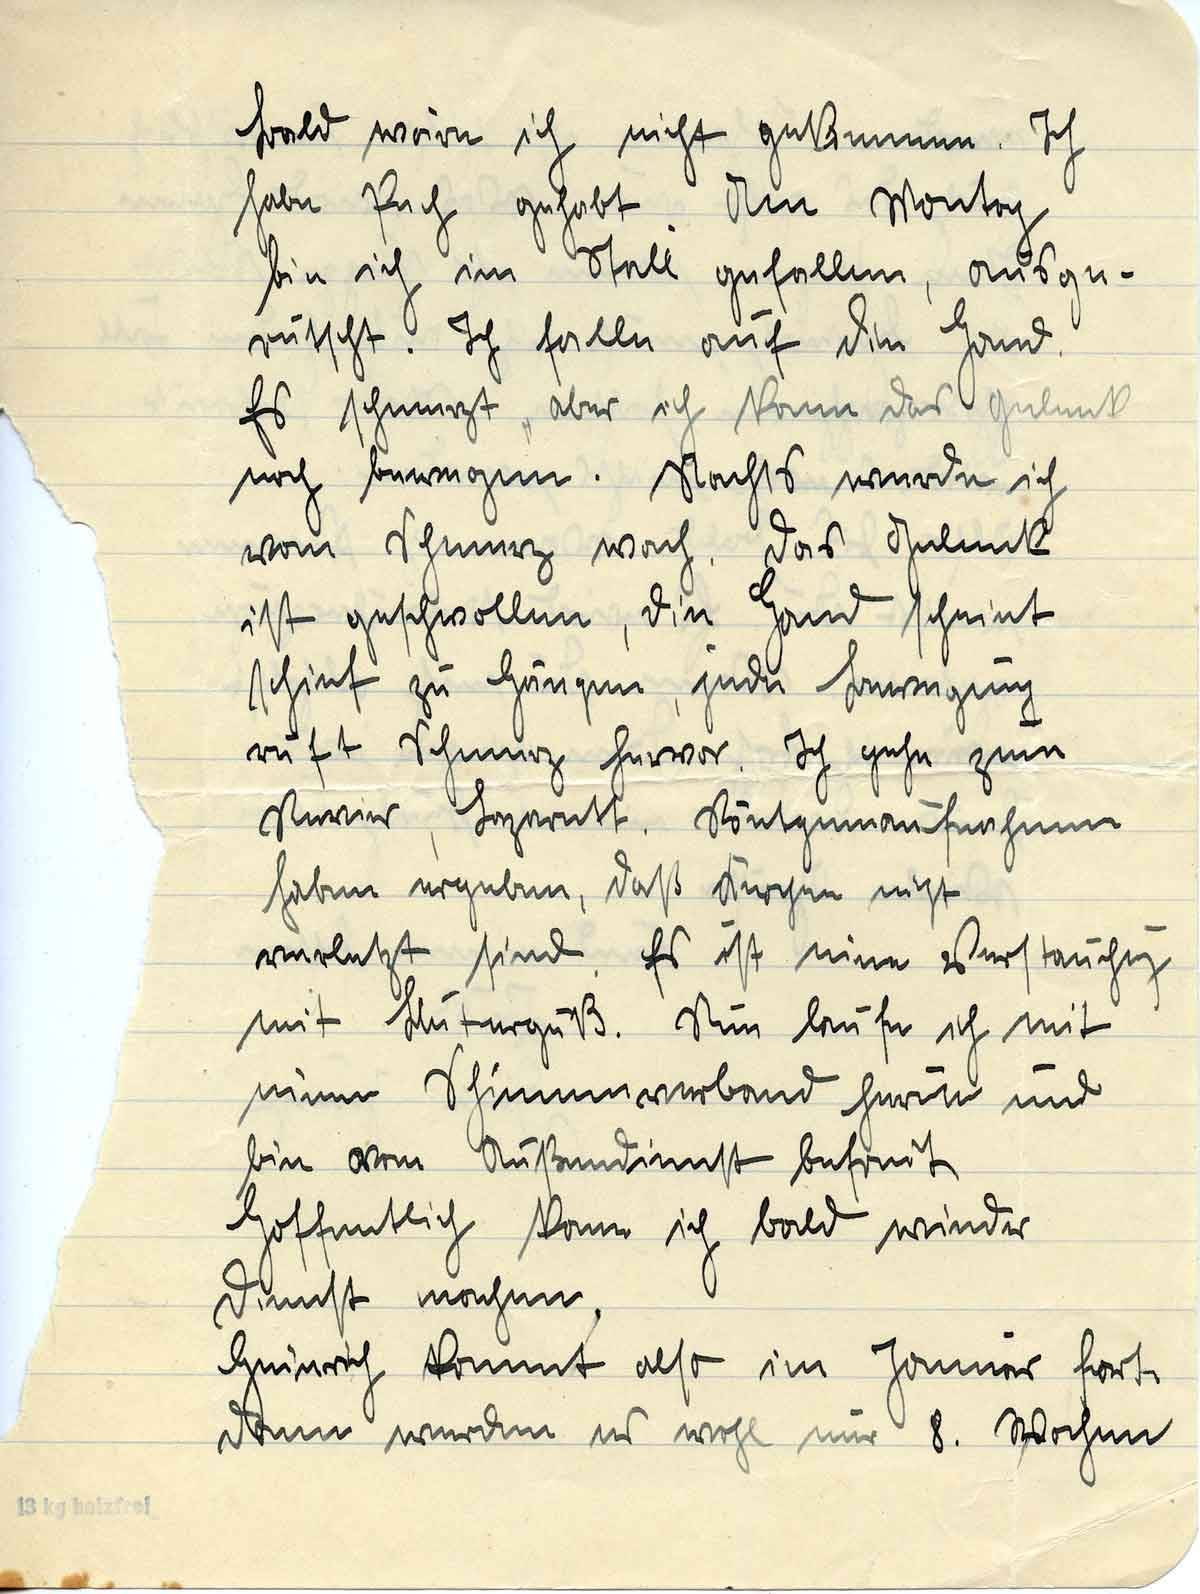 bald wäre ich nicht gekommen. Ich
habe Pech gehabt. Am Montag
bin ich im Stall gefallen, ausge-
rutscht. Ich falle auf die Hand.
Es schmerzt, aber ich kann das Gelenk
noch bewegen. Nachts werde ich
vom Schmerz wach. Das Gelenk
ist geschwollen, die Hand scheint
schief zu hängen, jede Bewegung
ruft Schmerz hervor. Ich gehe zum
Revier, Lazarett. Röntgenaufnahmen
haben ergeben, daß Knochen nicht
verletzt sind. Es ist eine Verstauchung
mit Bluterguß. Nun laufe ich mit
einem Schienenverband herum und
bin vom Außendienst befreit
Hoffentlich kann ich bald wieder
Dienst machen.
Heinrich kommt also im Januar fort.
Dann werden es wohl nur 8. Wochen
13 kg holzfrei